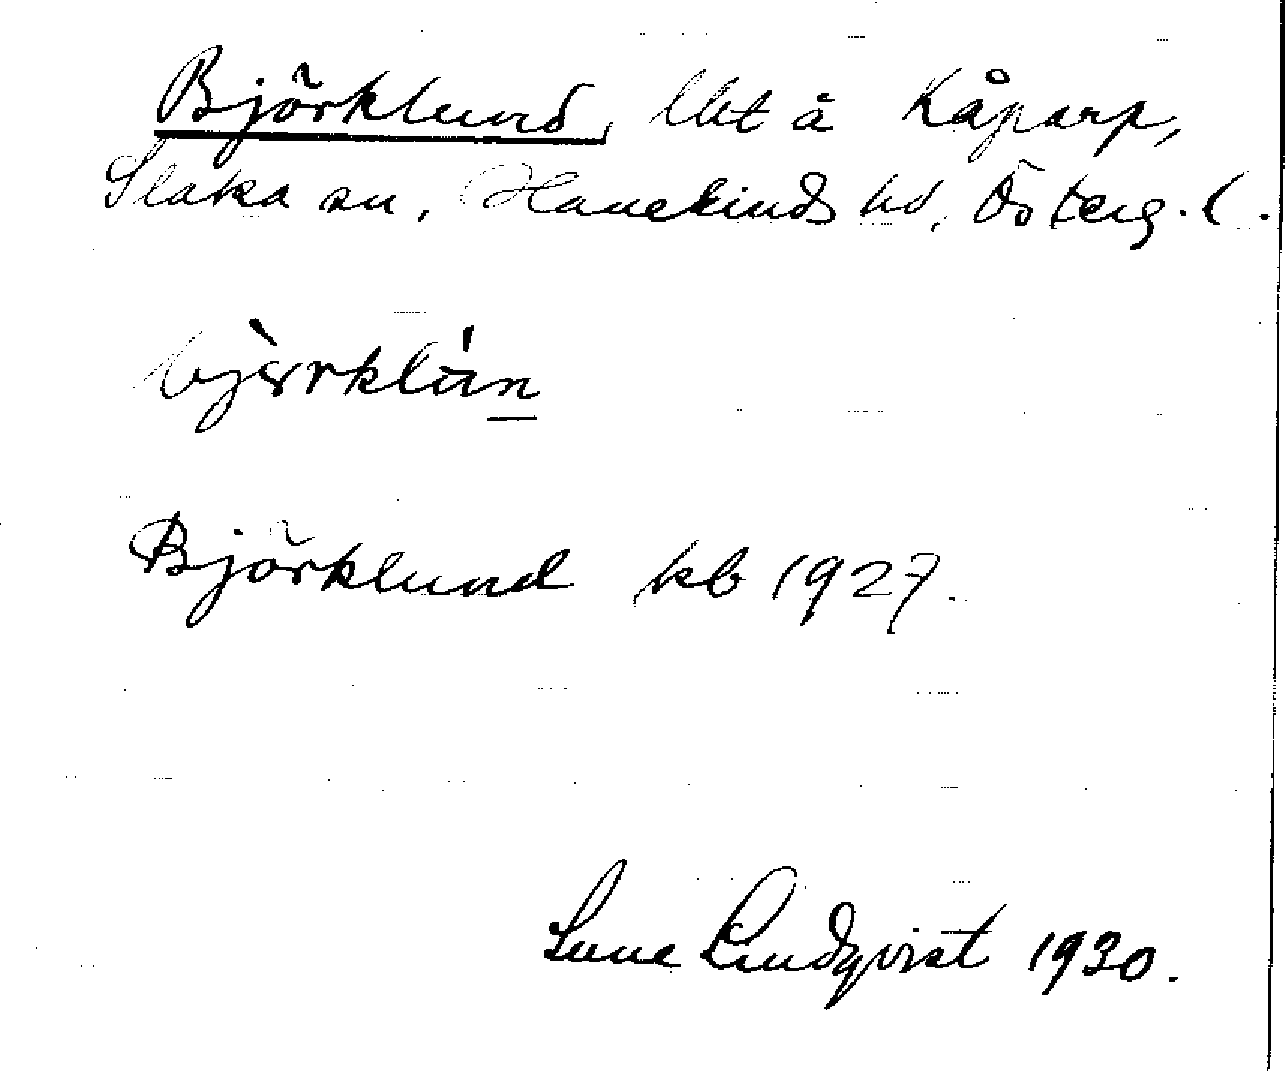 Björklund, lht å Kåparp,
Slaka sn, Hanekinds hd, Österg. l.
Björklund kb 1927.
Sune Lindqvist 1930.